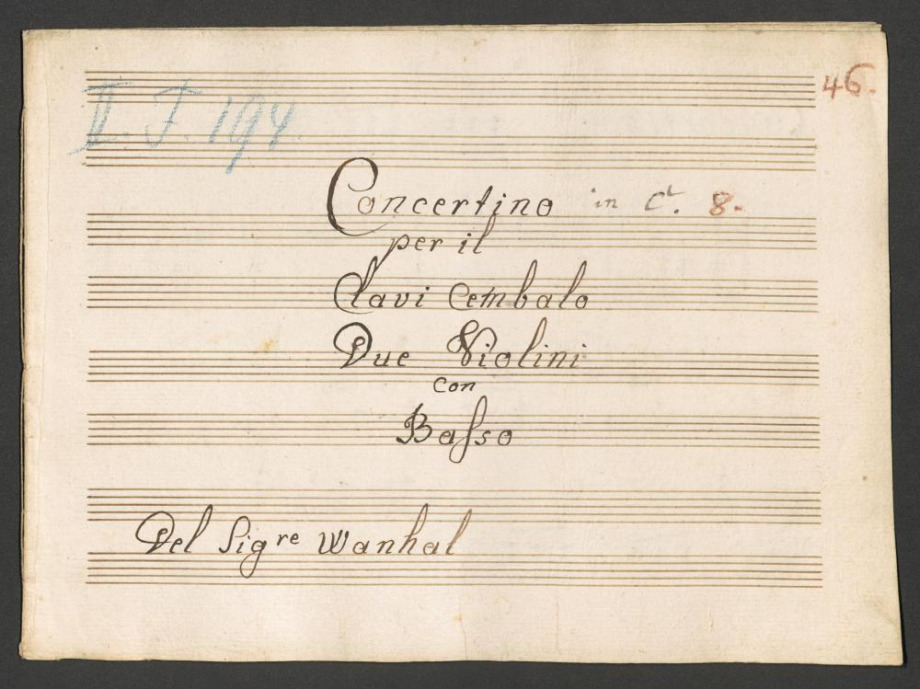 46.
II. F. 194
Concertino in C♮. 8.
per il
Clavi Cembalo
Due Violini
con
Baſso
Del Sigre Wanhal